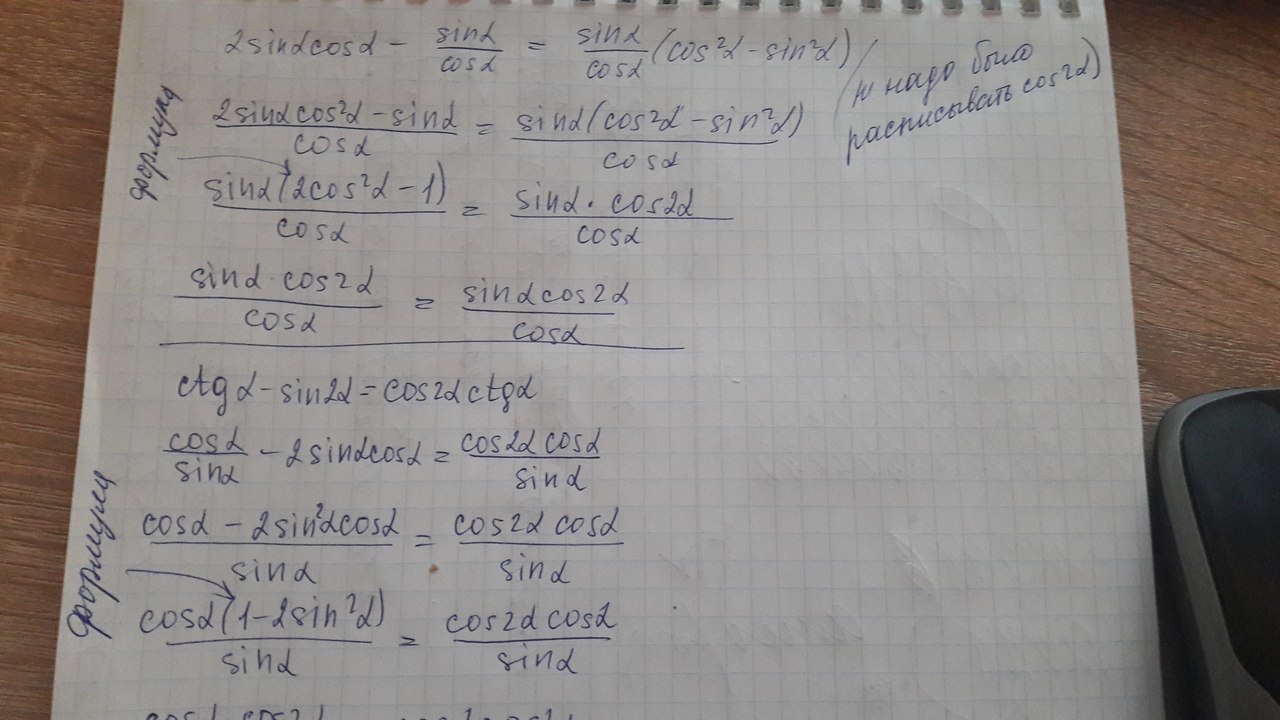 2sinαcosα - sinα/cosα = sinα/cosα (cos²α - sin²α)
надо было
расписывать cos2α)
формула
(2sinαcos²α - sinα)/cosα = sinα(cos²α - sin²α)/cosα
sinα(2cos²α - 1)/cosα = sinα · cos2α/cosα
sinα · cos2α/cosα = sinαcos2α/cosα
ctgα - sin2α = cos2α ctgα
cosα/sinα - 2sinαcosα = cos2α cosα/sinα
формула
(cosα - 2sin²αcosα)/sinα = cos2α cosα/sinα
cosα(1 - 2sin²α)/sinα = cos2α cosα/sinα